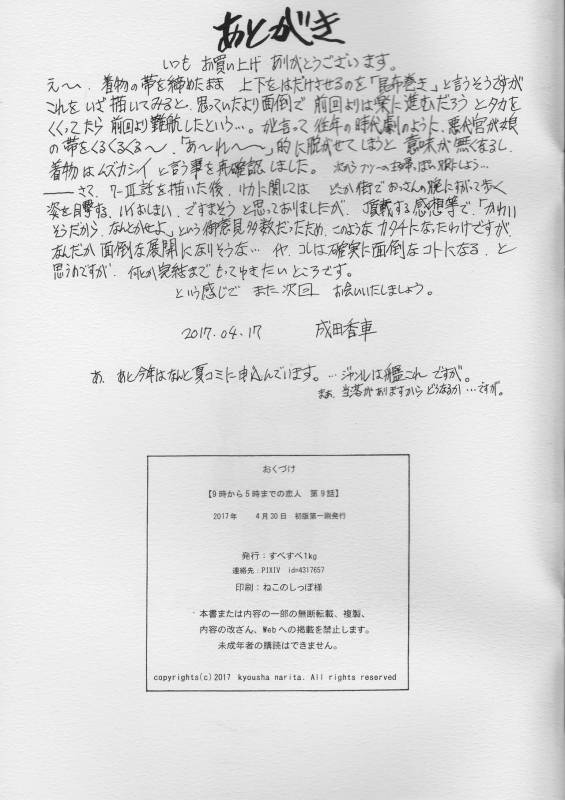 あとがき
いつも お買い上げ ありがとうございます。
え〜、着物の帯を締めたまま 上下をはだけさせるのを「昆布巻き」と言うそうですが
これを いざ描いてみると、思っていたより面倒で 前回よりは楽に進むだろうとタカを
くくってたら 前回より難航したという…。がと言って 往年の時代劇のように、悪代官が娘
の帯をくるくるくる〜、「あ〜れ〜〜」的に脱がせてしまうと 意味が無くなるし、
着物はムズカシイ と言う事を再確認しました。
――さて、リカに関しては どこか街でおっさんの腕にすがって歩く
姿を目撃する、ハイおしまい、ですまそうと思っておりましたが、頂戴する感想等で、「かわいい
そうだから、なんとかせよ」という御意見多数だったため、このような カタチになったわけですが、
なんだか 面倒な展開になりそうな… イヤ、コレは確実に面倒なコトになる、と
思うのですが、何とか完結まで もってゆきたいところです。
という感じで また次回 お会いいたしましょう。
2017.04.17 成田香車
あ、あと今年はなんと夏コミに申込んでいます。…ジャンルは艦これ ですが。
まあ、当落がありますから どうなるか…ですが。
おくづけ
【9時から5時までの恋人 第9話】
2017年 4月30日 初版第一刷発行
発行：すべすべ1kg
連絡先：PIXIV id=4317657
印刷：ねこのしっぽ様
本書または内容の一部の無断転載、複製、
内容の改ざん、Webへの掲載を禁止します。
未成年者の購読はできません。
copyrights(c)2017 kyousha narita. All rights reserved